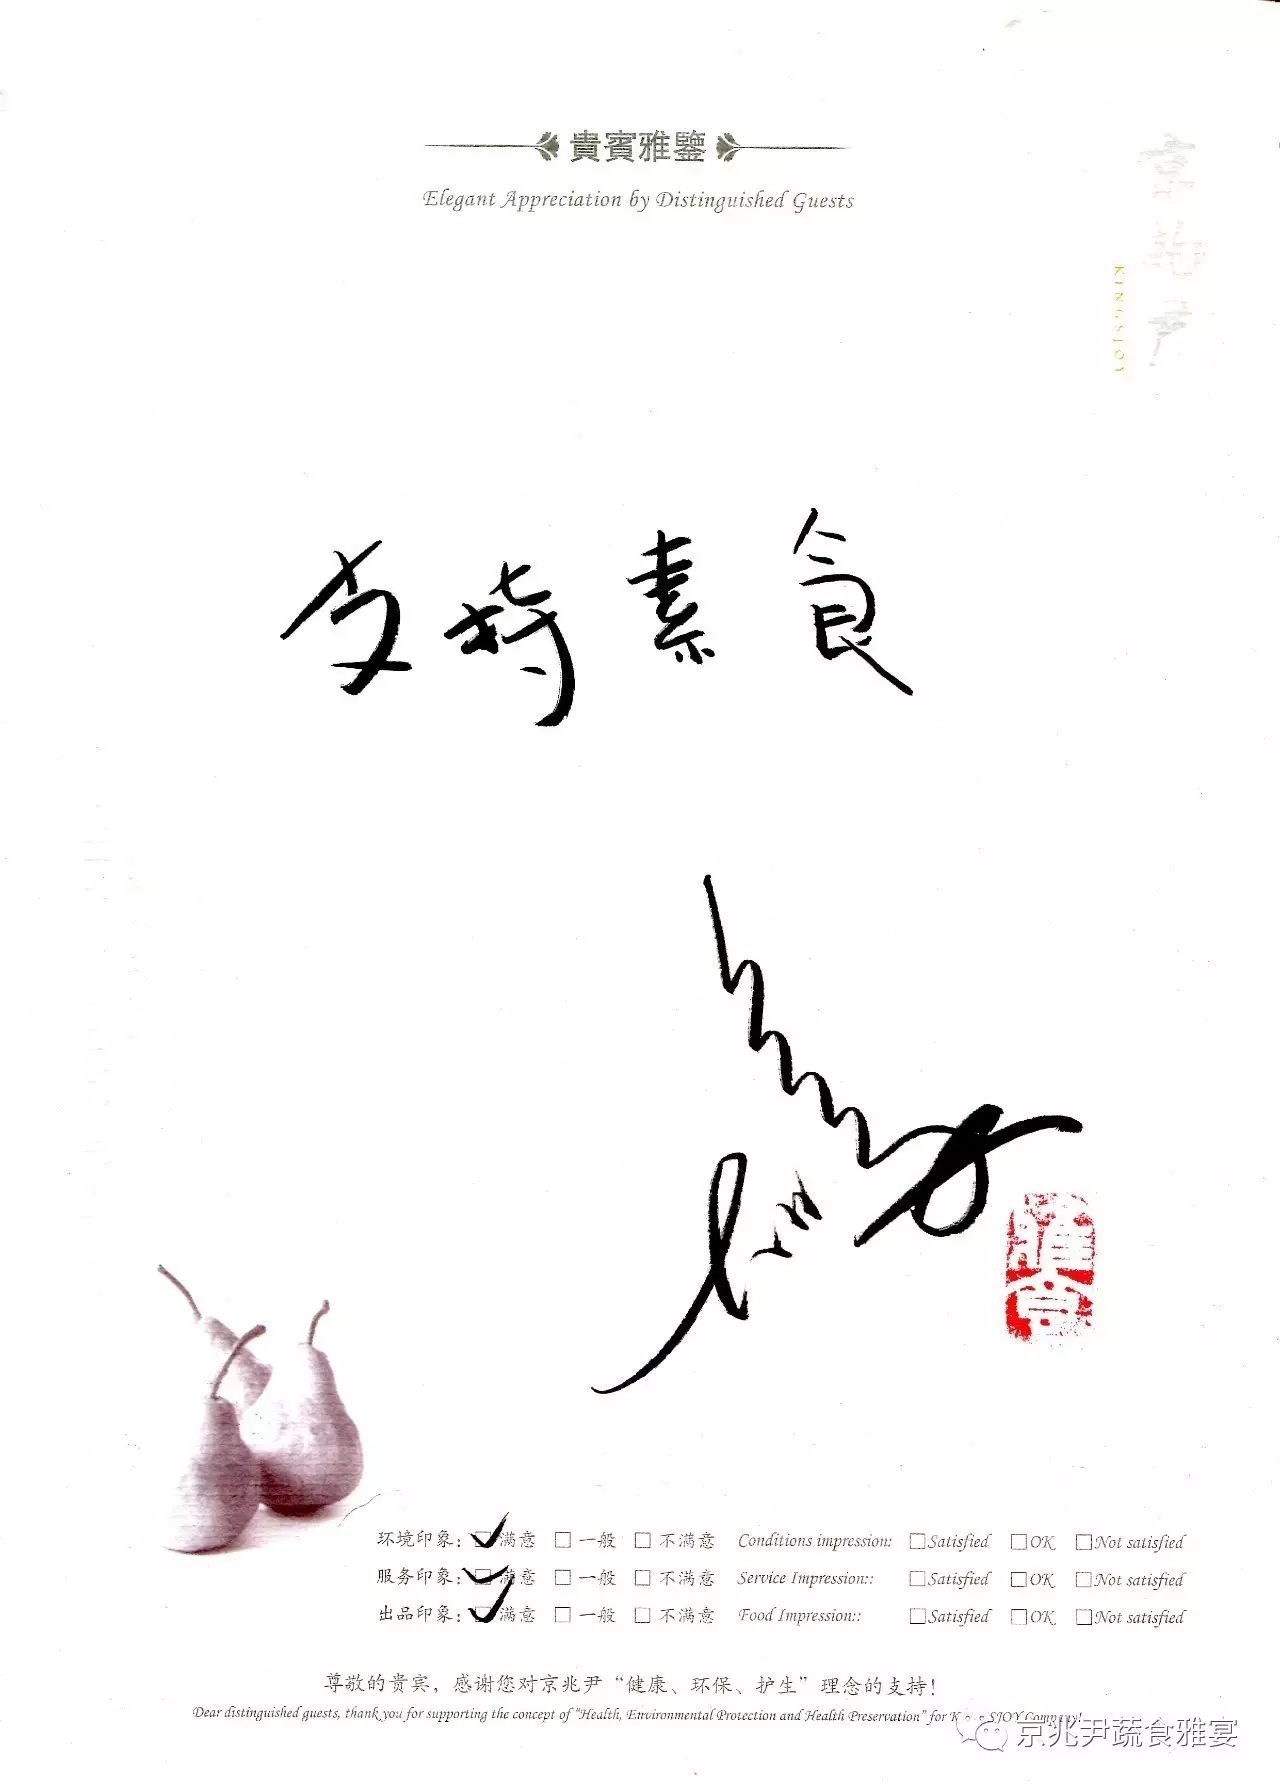 貴賓雅鑒
Elegant Appreciation by Distinguished Guests
京兆尹
KINGSJOY
支持素食
环境印象：□满意 □一般 □不满意 Conditions impression: □Satisfied □OK □Not satisfied
服务印象：□满意 □一般 □不满意 Service Impression:: □Satisfied □OK □Not satisfied
出品印象：□满意 □一般 □不满意 Food Impression:: □Satisfied □OK □Not satisfied
尊敬的贵宾，感谢您对京兆尹“健康、环保、护生”理念的支持！
Dear distinguished guests, thank you for supporting the concept of "Health, Environmental Protection and Health Preservation" for SJOY Company!
京兆尹蔬食雅宴